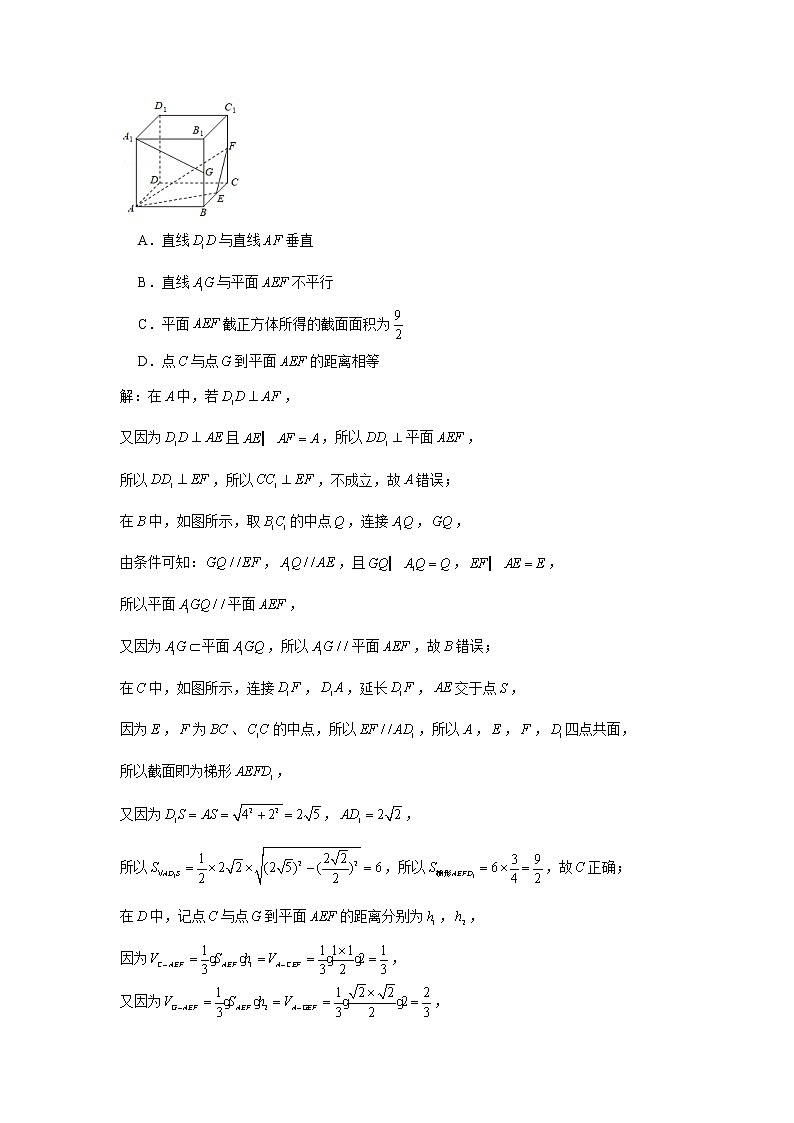 D₁ C₁
A₁ B₁
F
G
D C
E
A B
A．直线D₁D与直线AF垂直
B．直线A₁G与平面AEF不平行
C．平面AEF截正方体所得的截面面积为9/2
D．点C与点G到平面AEF的距离相等
解：在A中，若D₁D⊥AF，
又因为D₁D⊥AE且AE| AF=A，所以DD₁⊥平面AEF，
所以DD₁⊥EF，所以CC₁⊥EF，不成立，故A错误；
在B中，如图所示，取B₁C₁的中点Q，连接A₁Q，GQ，
由条件可知：GQ//EF，A₁Q//AE，且GQ| A₁Q=Q，EF| AE=E，
所以平面A₁GQ//平面AEF，
又因为A₁G⊂平面A₁GQ，所以A₁G//平面AEF，故B错误；
在C中，如图所示，连接D₁F，D₁A，延长D₁F，AE交于点S，
因为E，F为BC、C₁C的中点，所以EF//AD₁，所以A，E，F，D₁四点共面，
所以截面即为梯形AEFD₁，
又因为D₁S=AS=√(4²+2²)=2√5，AD₁=2√2，
所以S_{VAD₁S}=1/2×2√2×√((2√5)²-(2√2/2)²)=6，所以S_{梯形AEFD₁}=6×3/4=9/2，故C正确；
在D中，记点C与点G到平面AEF的距离分别为h₁，h₂，
因为V_{C-AEF}=1/3gS_{AEF}gh₁=V_{A-CEF}=1/3g(1×1)/2g2=1/3，
又因为V_{G-AEF}=1/3gS_{AEF}gh₂=V_{A-GEF}=1/3g(√2×√2)/2g2=2/3，